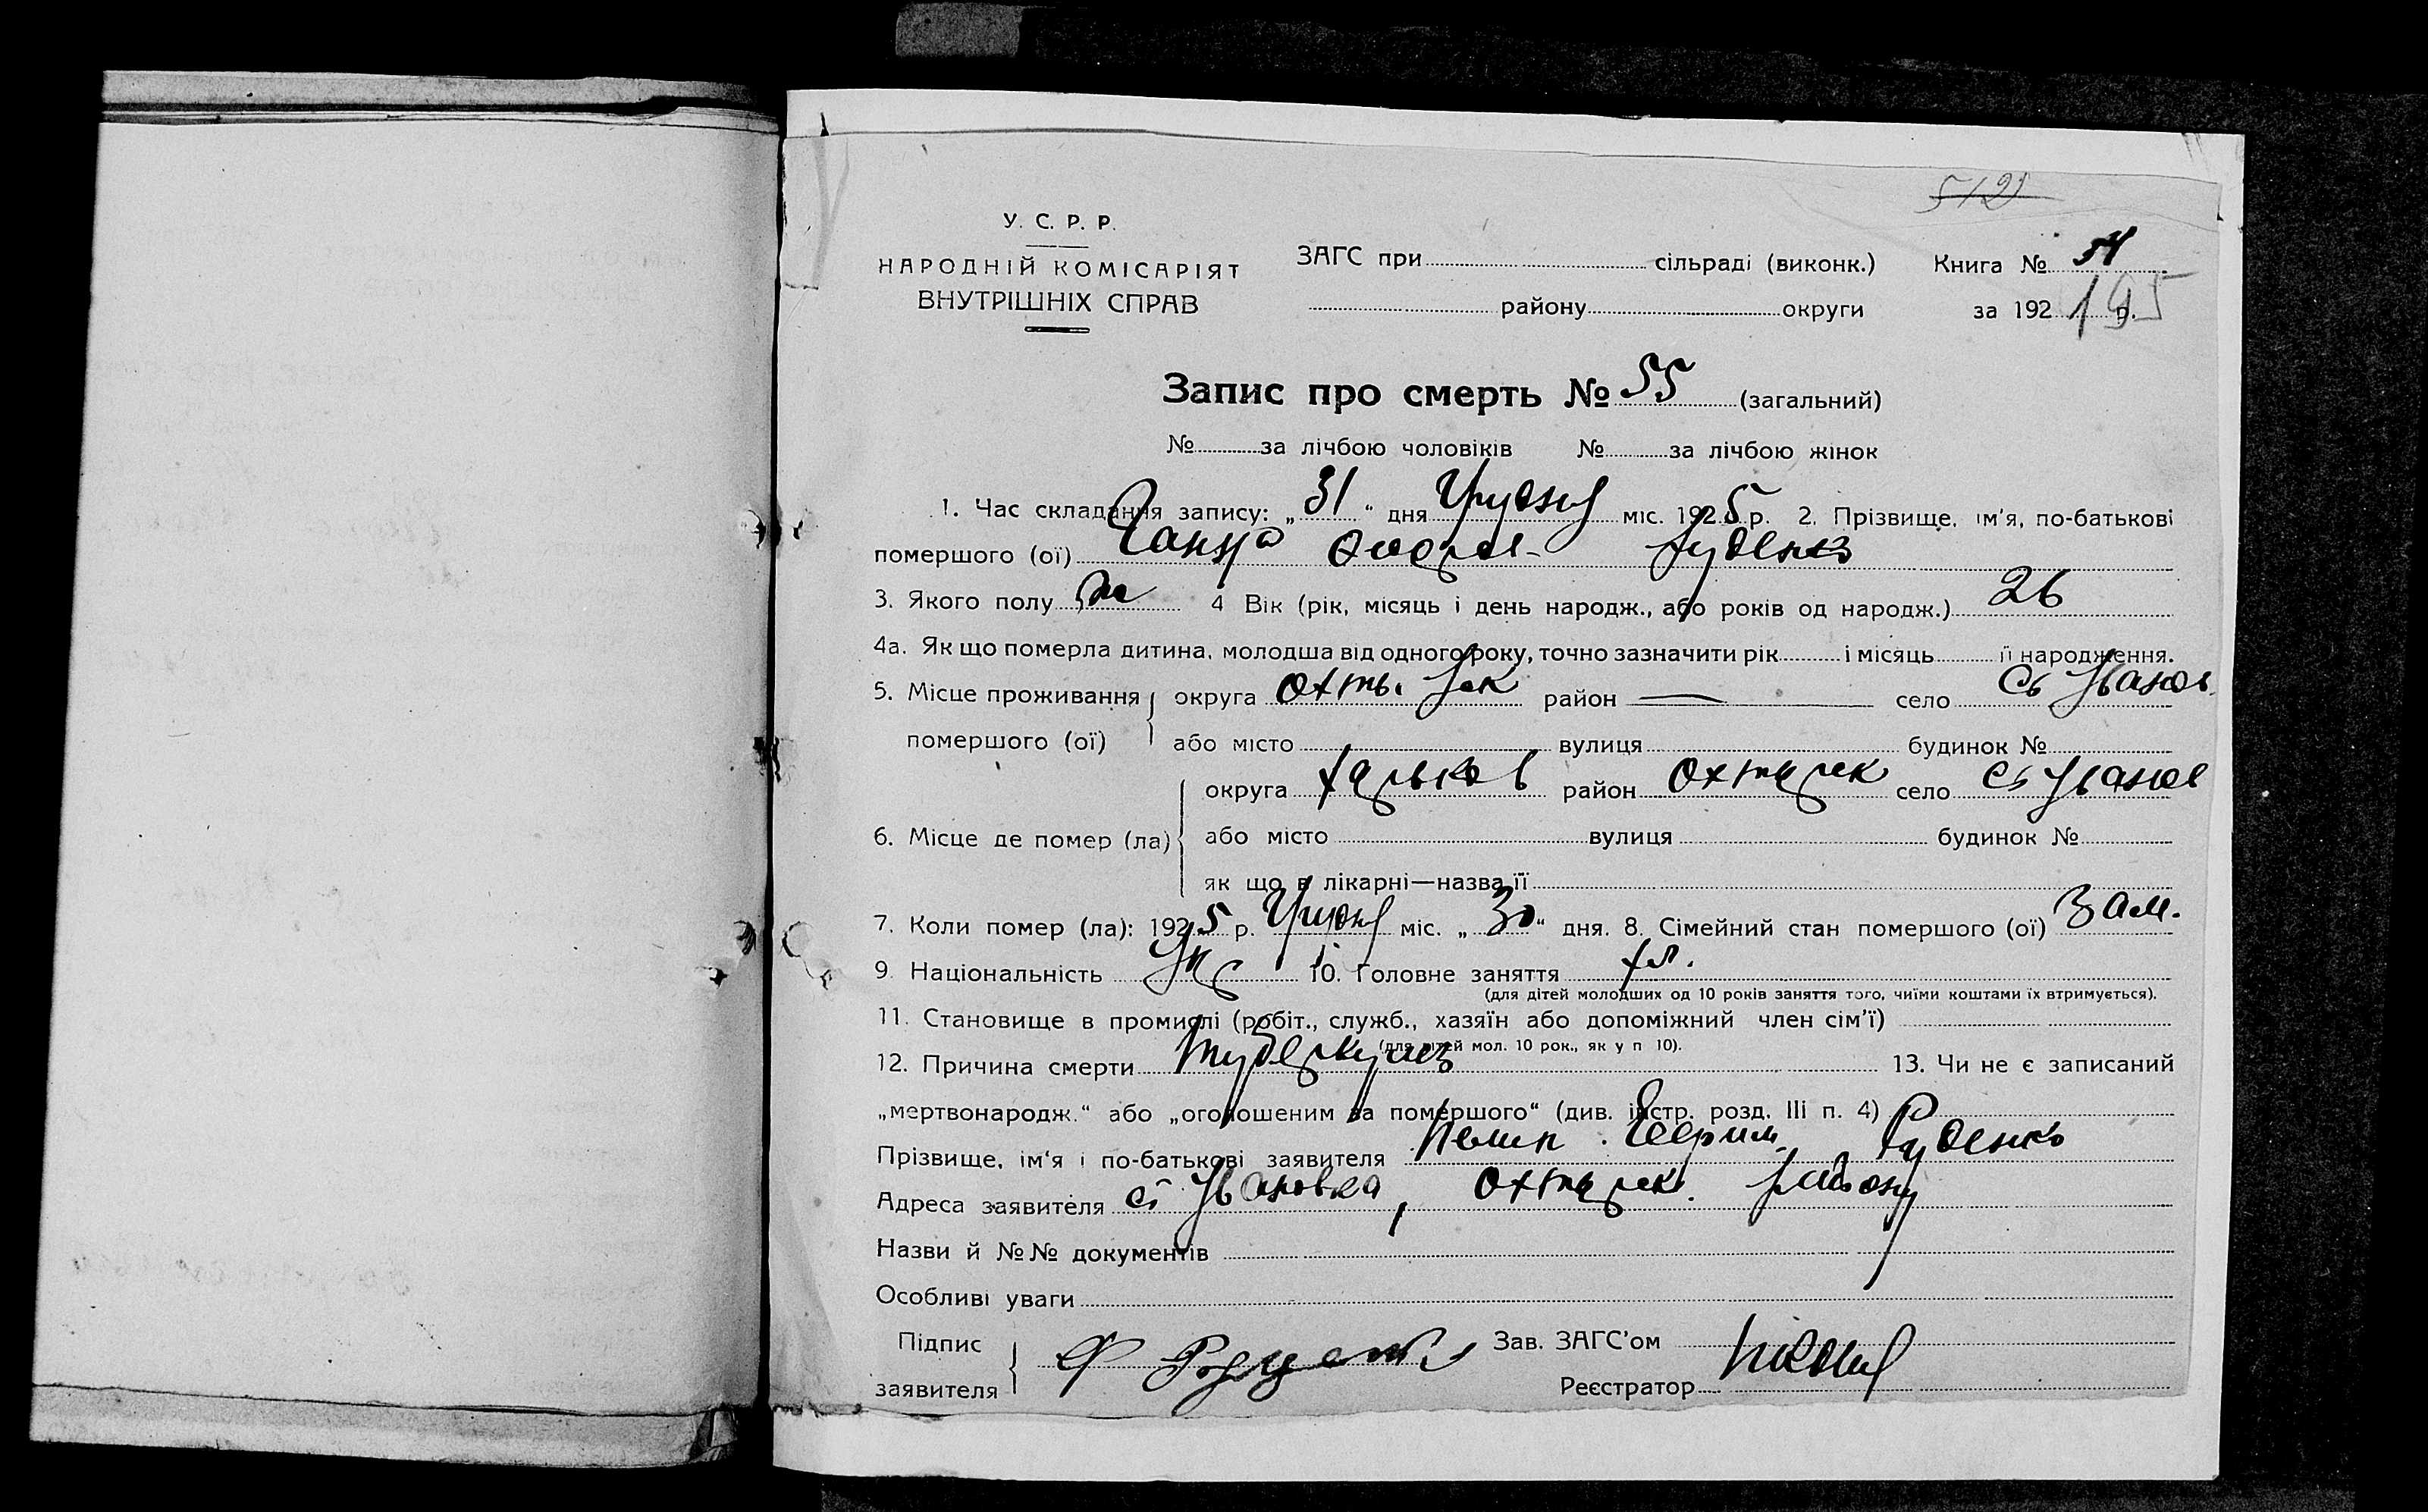 5121
У. С. Р. Р.
НАРОДНІЙ КОМІСАРІЯТ
ВНУТРІШНІХ СПРАВ
ЗАГС при сільраді (виконк.) Книга №
району округи за 192 р. 195
Запис про смерть № 55 (загальний)
№ за лічбою чоловіків № за лічбою жінок
1. Час складання запису: „31“ дня Грудня міс. 1925 р. 2. Прізвище, ім'я, по-батькові
помершого (ої) Ганна Руденко
3. Якого полу 4 Вік (рік, місяць і день народж., або років од народж.) 26
4а. Як що померла дитина, молодша від одного року, точно зазначити рік і місяць її народження.
5. Місце проживання округа Охть. Рек район — село Сь Іванов.
помершого (ої) або місто вулиця будинок №
округа Харьков район Охтырек село Сь Іванов
6. Місце де помер (ла) або місто вулиця будинок №
як що в лікарні—назва її
7. Коли помер (ла): 1925 р. Грудня міс. „30“ дня. 8. Сімейний стан помершого (ої) Зам.
9. Національність Укр 10. Головне заняття хл.
(для дітей молодших од 10 років заняття того, чиїми коштами їх втримується).
11. Становище в промислі (робіт., служб., хазяїн або допоміжний член сім'ї)
(для дітей мол. 10 рок., як у п 10).
12. Причина смерти туберкулез 13. Чи не є записаний
„мертвонародж.“ або „оголошеним за помершого“ (див. інстр. розд. III п. 4)
Прізвище, ім'я і по-батькові заявителя Руденко
Адреса заявителя сі Івановка, Охтырек. району
Назви й №№ документів
Особливі уваги
Підпис Зав. ЗАГС'ом
заявителя Ф Руденко
Реєстратор